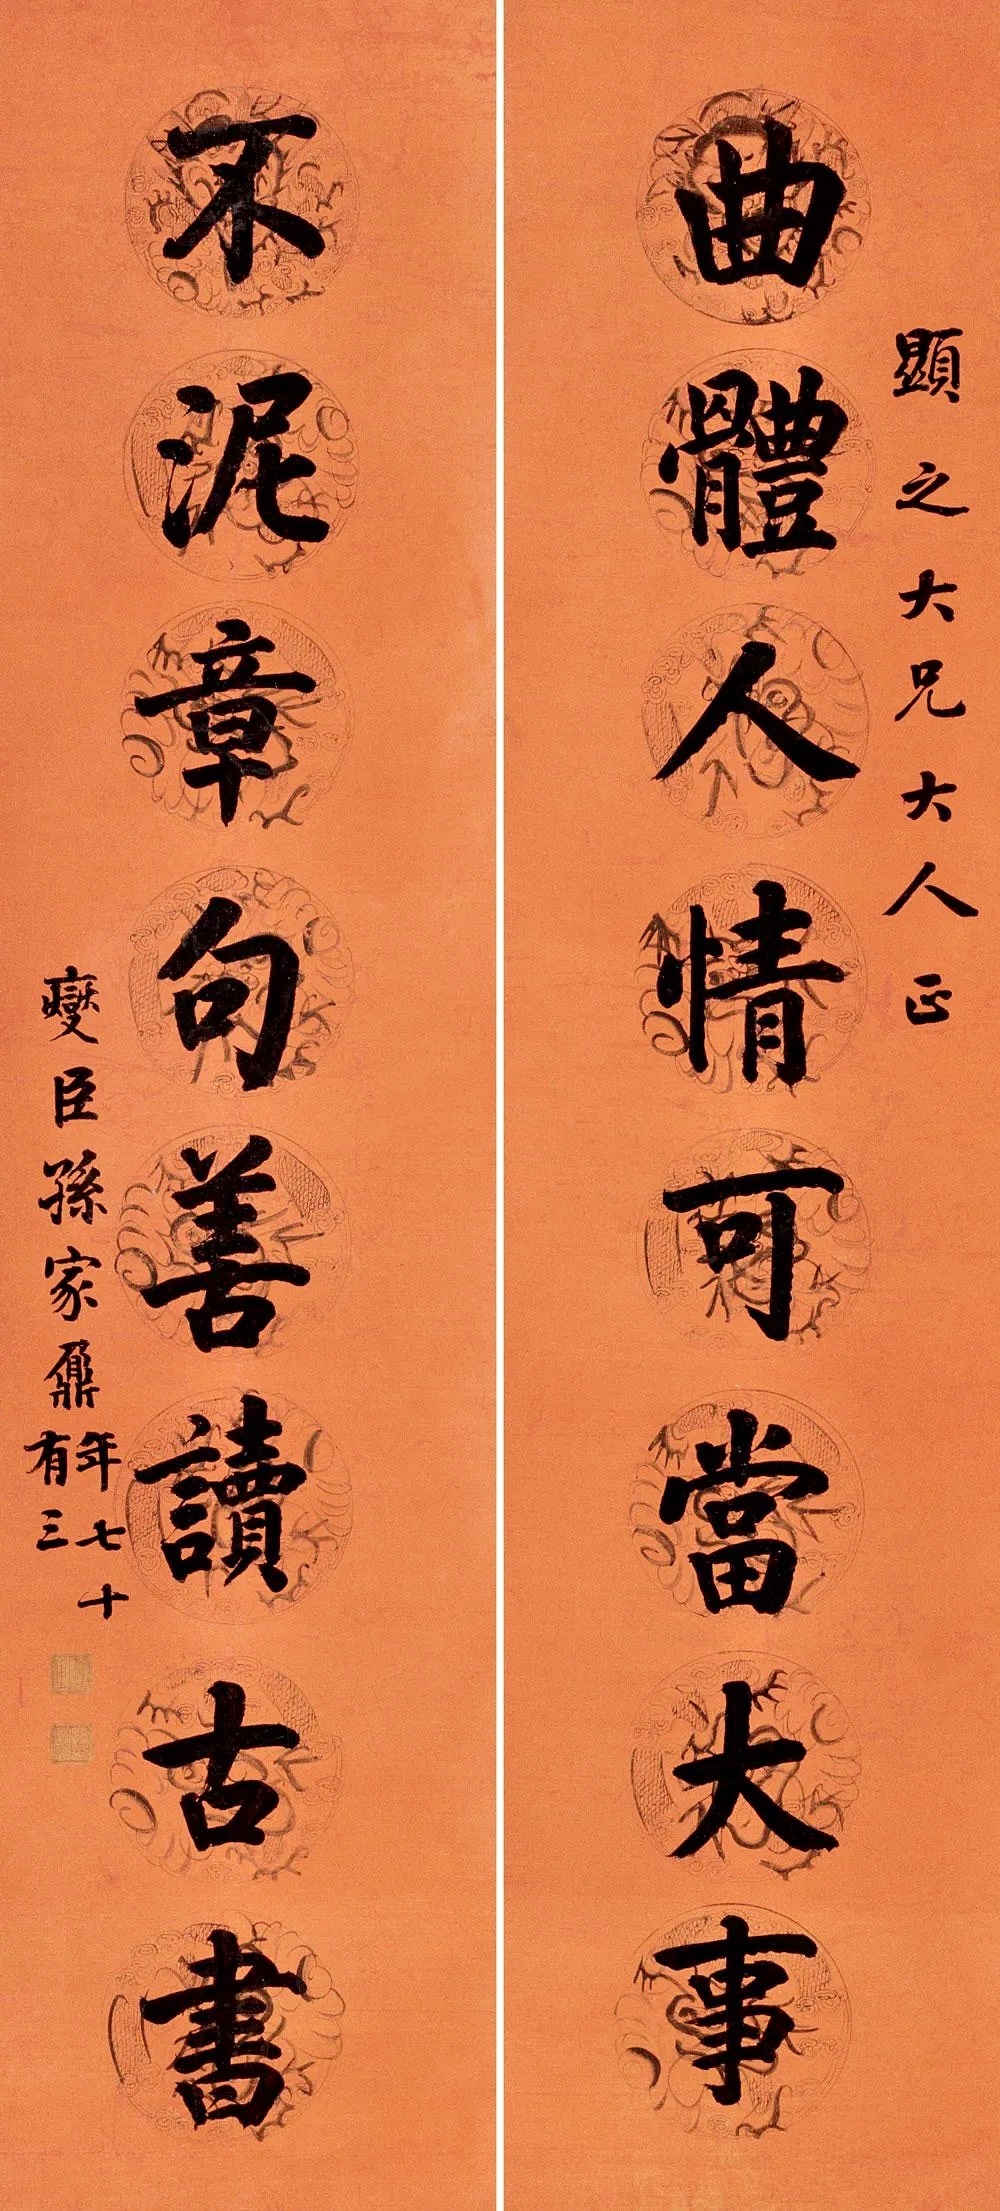 顯之大兄大人正
曲體人情可當大事
不泥章句善讀古書
燮臣孫家鼐年七十
有三